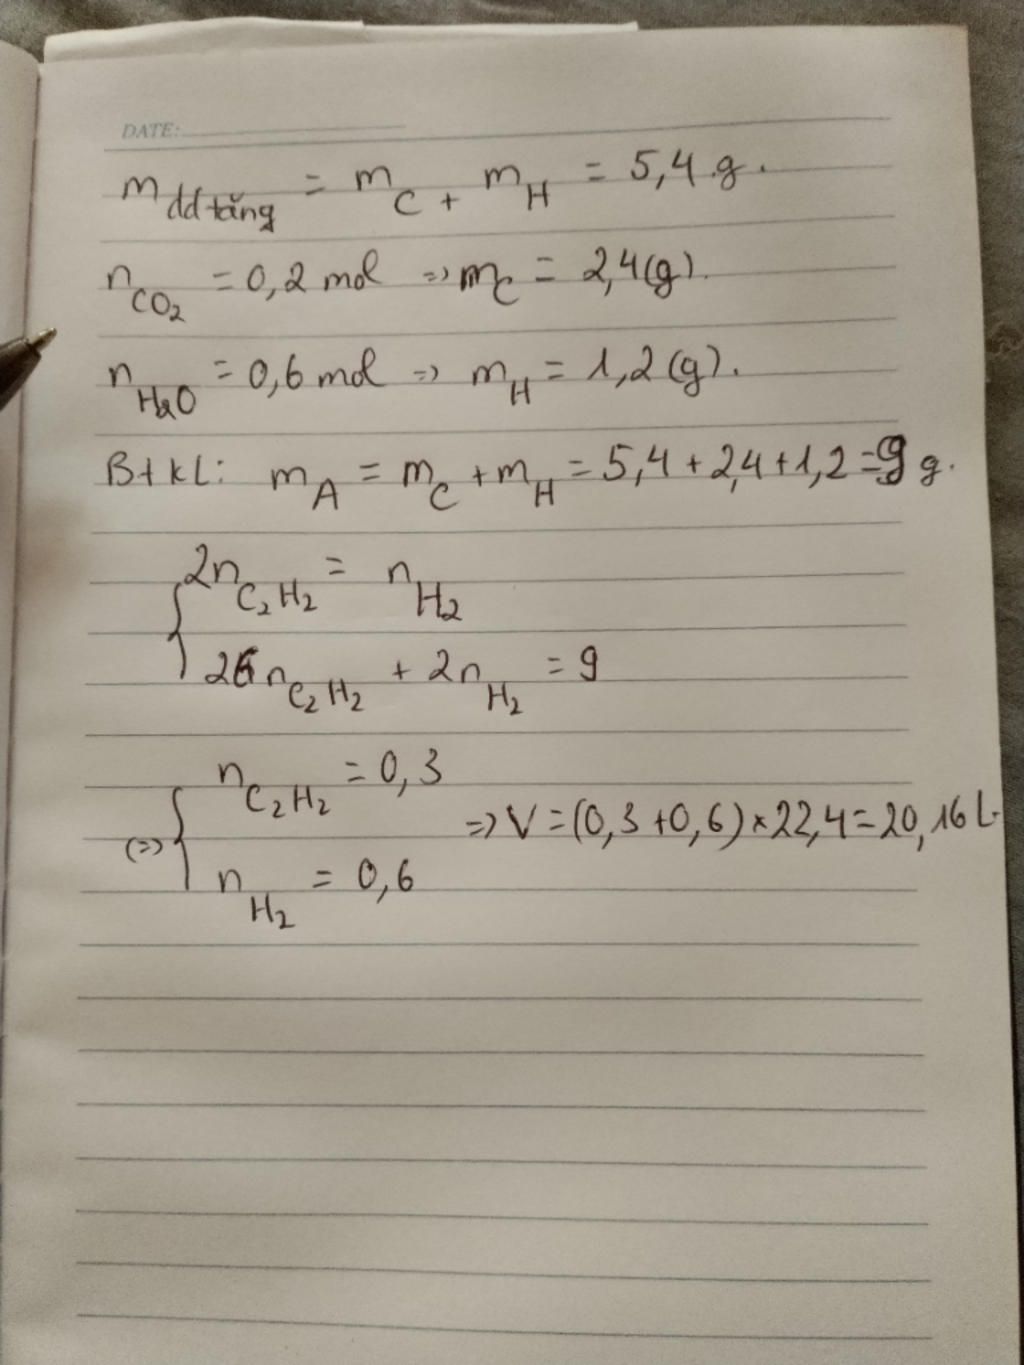 DATE:
m dd tăng = m C + m H = 5,4 g.
n CO2 = 0,2 mol => mC = 2,4(g).
n H2O = 0,6 mol => m H = 1,2 (g).
BtKL: m A = m C + m H = 5,4 + 2,4 + 1,2 = 9 g.
2n C2H2 = n H2
26n C2H2 + 2n H2 = 9
n C2H2 = 0,3
(=>) => V = (0,3 + 0,6) × 22,4 = 20,16 L.
n H2 = 0,6